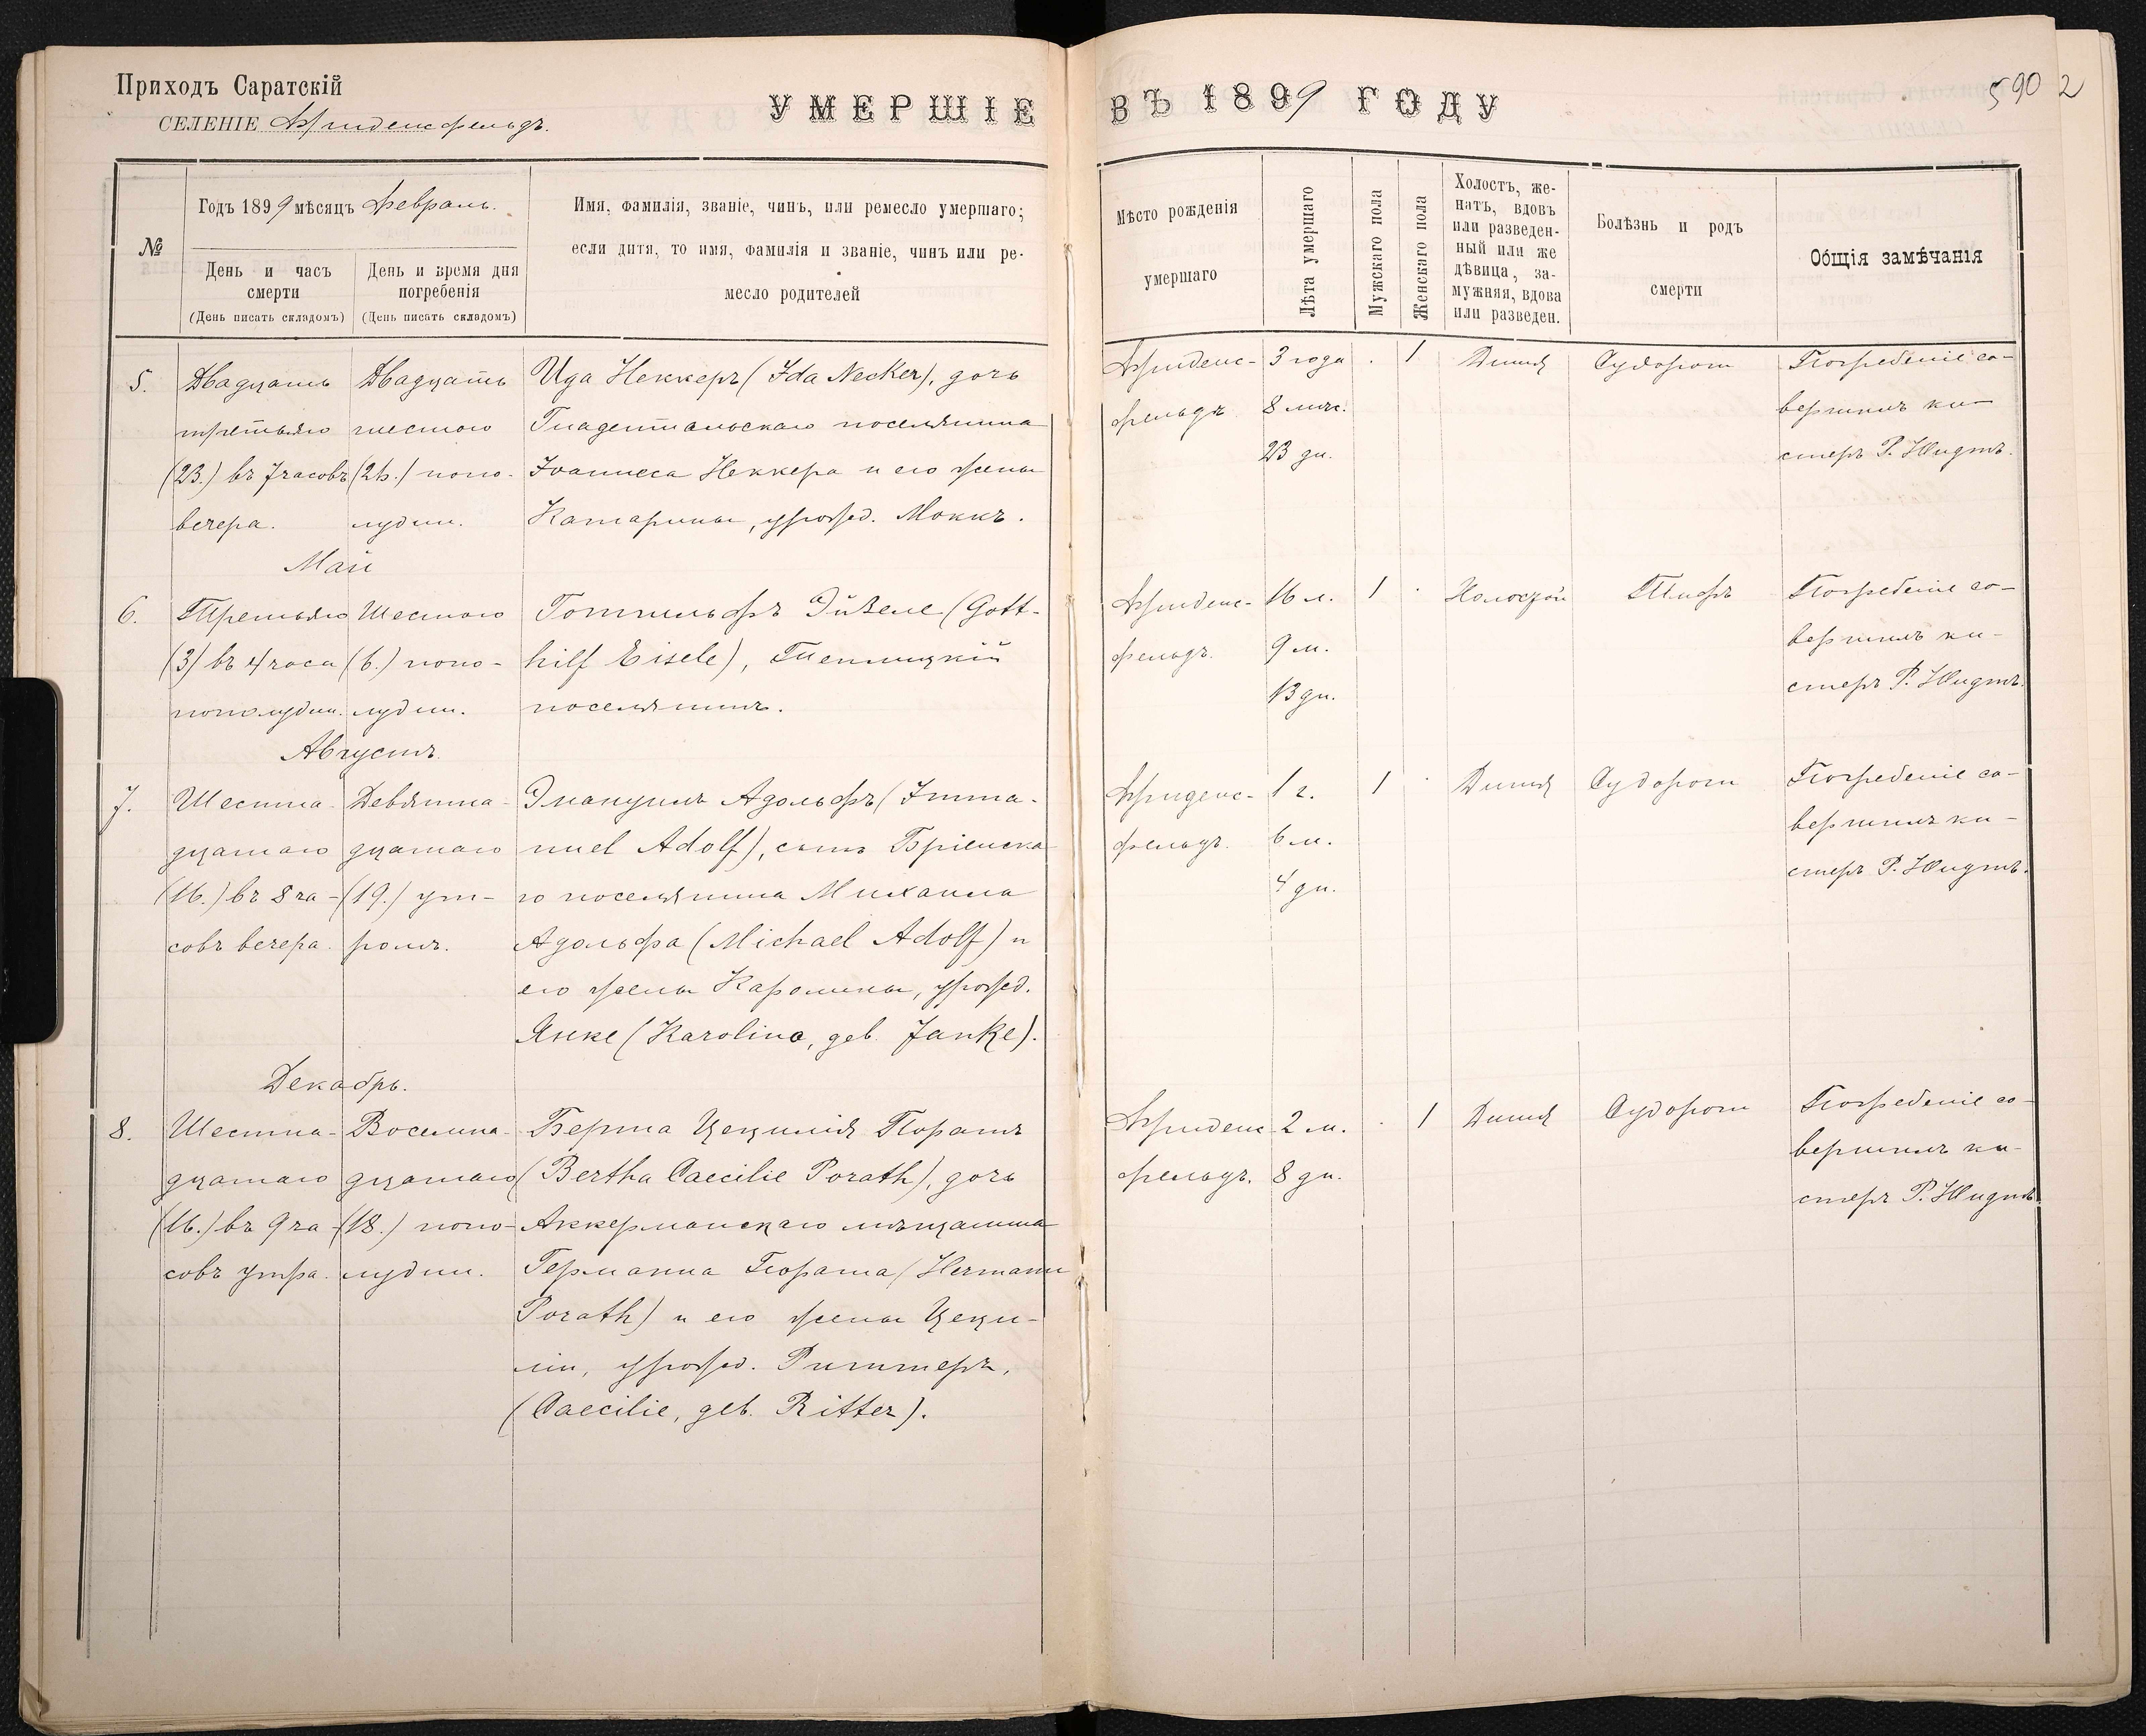 Приходъ Саратскій
СЕЛЕНІЕ Фриденсфельдъ.
УМЕРШІЕ ВЪ 1899 ГОДУ
590 2
№
Годъ 1899 мѣсяцъ Февраль.
День и часъ
смерти
(День писать складомъ)
День и время дня
погребенія
(День писать складомъ)
Имя, фамилія, званіе, чинъ, или ремесло умершаго;
если дитя, то имя, фамилія и званіе, чинъ или ре-
месло родителей
Мѣсто рожденія
умершаго
Лѣта умершаго
Мужскаго пола
Женскаго пола
Холостъ, же-
натъ, вдовъ
или разведен-
ный или же
дѣвица, за-
мужняя, вдова
или разведен.
Болѣзнь и родъ
смерти
Общія замѣчанія
5.
Двадцать
третьяго
(23.) въ 7 часовъ
вечера.
Двадцать
шестого
(26.) попо-
лудни.
Ида Неккеръ (Ida Necker), дочь
Гнадентальскаго поселянина
Іоаннеса Неккера и его жены
Катарины, урожд. Моккъ.
Фриденс-
фельдъ.
3 года
8 мѣс.
23 дн.
. 1
Дитя
Судороги
Погребеніе со-
вершилъ ки-
стеръ Р. Нидтъ.
Май
6.
Третьяго
(3) въ 4 часа
пополудни.
Шестого
(6.) попо-
лудни.
Готтильфъ Эйзеле (Gott-
hilf Eisele), Теплицкій
поселянинъ.
Фриденс-
фельдъ.
16 л.
9 м.
13 дн.
1 .
Холостой
Тифъ
Погребеніе со-
вершилъ ки-
стеръ Р. Нидтъ.
Августъ.
7.
Шестна-
дцатаго
(16.) въ 8 ча-
совъ вечера.
Девятна-
дцатаго
(19.) ут-
ромъ.
Эмануилъ Адольфъ (Imma-
nuel Adolf), сынъ Бріенска-
го поселянина Михаила
Адольфа (Michael Adolf) и
его жены Каролины, урожд.
Янке (Karolina, geb. Janke).
Фриденс-
фельдъ.
1 г.
6 м.
4 дн.
1 .
Дитя
Судороги
Погребеніе со-
вершилъ ки-
стеръ Р. Нидтъ.
Декабрь.
8.
Шестна-
дцатаго
(16.) въ 9 ча-
совъ утра.
Восемна-
дцатаго
(18.) попо-
лудни.
Берта Цецилія Поратъ
(Bertha Caecilie Porath), дочь
Аккерманскаго мѣщанина
Германна Пората (Hermann
Porath) и его жены Цеци-
ліи, урожд. Риттеръ,
(Caecilie, geb. Ritter).
Фриденс-
фельдъ.
2 м.
8 дн.
. 1
Дитя
Судороги
Погребеніе со-
вершилъ ки-
стеръ Р. Нидтъ.